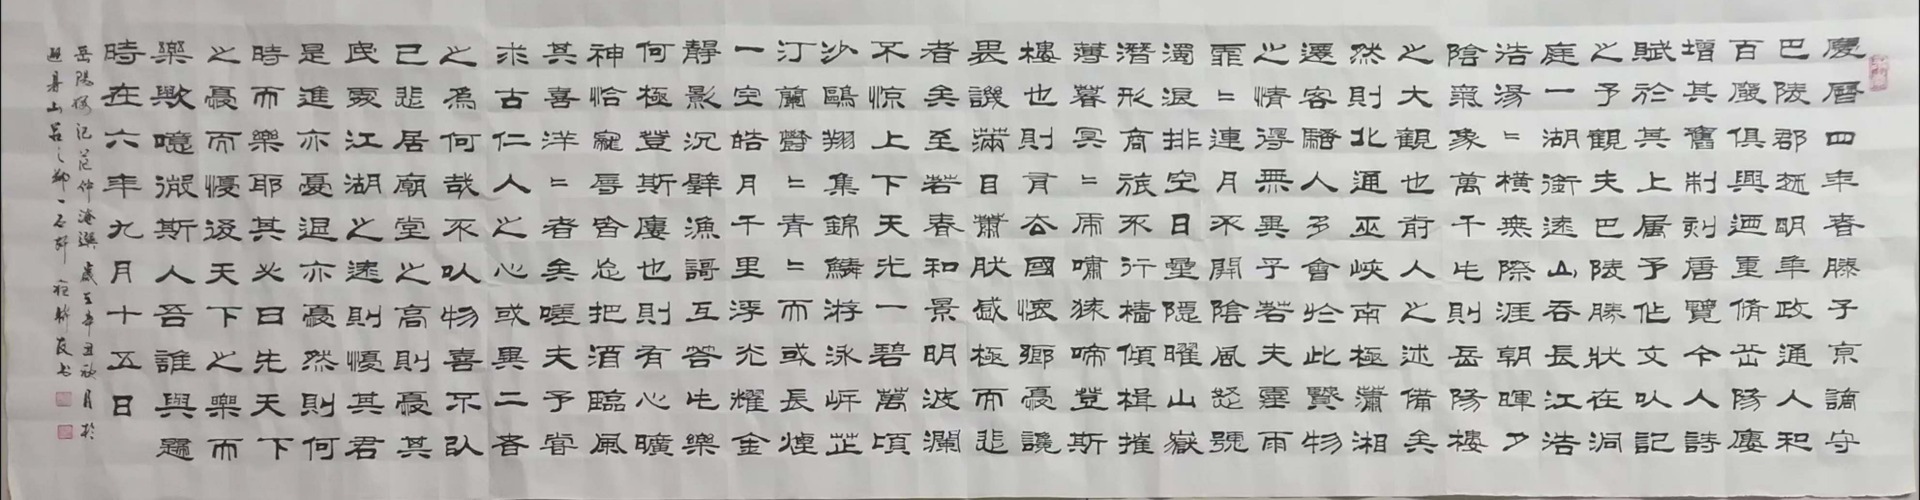 慶曆四年春滕子京謫守
巴陵郡越明年政通人和
百廢俱興迺重脩岳陽廔
增其舊制刻唐覽今人詩
賦於其上属予作文以記
之予觀夫巴陵勝狀在洞
庭一湖銜遠山吞長江浩
浩湯〻橫無際涯朝暉夕
陰氣象萬千此則岳陽樓
之大觀也前人之述備矣
然則北通巫峽南極瀟湘
遷客騷人多會於此覽物
之情得無異乎若夫霪雨
霏〻連月不開陰風怒號
濁浪排空日星隱曜山嶽
潛形商旅不行檣傾楫摧
薄暮冥〻虎嘯猿啼登斯
樓也則有去國懷鄉憂讒
畏譏滿目蕭然感極而悲
者矣至若春和景明波瀾
不惊上下天光一碧萬頃
沙鷗翔集錦鱗游泳岸芷
汀蘭鬱〻青〻而或長煙
一空皓月千里浮光耀金
靜影沉璧漁謌互答此樂
何極登斯廔也則有心曠
神怡寵辱皆忘把酒臨風
其喜洋〻者矣嗟夫予嘗
求古仁人之心或異二者
之為何哉不以物喜不以
己悲居廟堂之高則憂其
民處江湖之遠則憂其君
是進亦憂退亦憂然則何
時而樂耶其必曰先天下
之憂而憂後天下之樂而
樂歟噫微斯人吾誰與歸
時在六年九月十五日
岳陽樓記范仲淹撰歲在辛丑秋月於